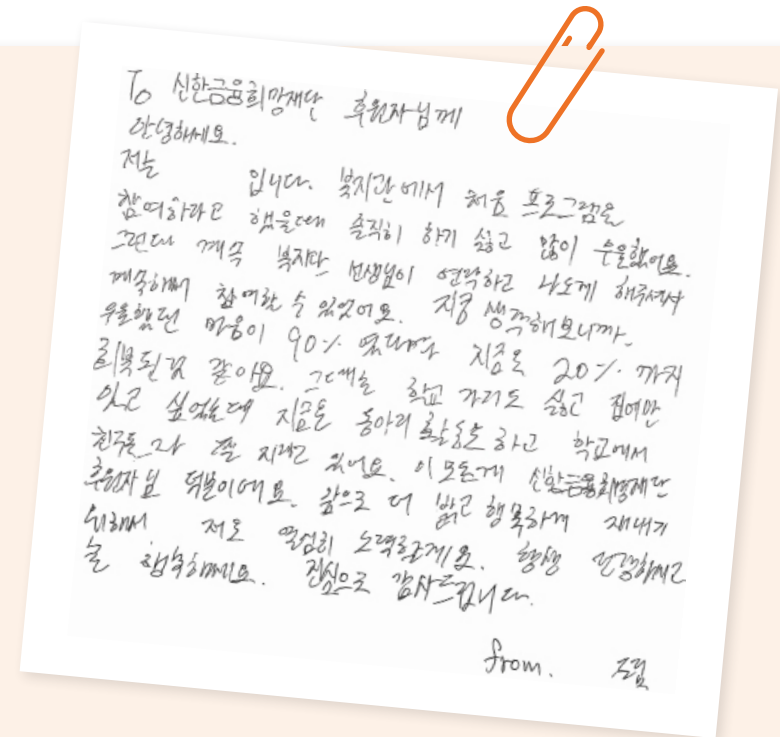 To 신한금융희망재단 후원자님께
안녕하세요.
저는 입니다. 복지관에서 처음 프로그램을
참여하라고 했을때 솔직히 하기 싫고 많이 우울했어요.
그런데 계속 복지관 선생님이 연락하고 나오게 해주셔서
계속해서 참여할 수 있었어요. 지금 생각해보니까,
우울했던 마음이 90% 였다면 지금은 20% 까지
회복된것 같아요. 그때는 학교 가기도 싫고 집에만
있고 싶었는데 지금은 동아리 활동도 하고 학교에서
친구들과 잘 지내고 있어요. 이 모든게 신한금융희망재단
후원자님 덕분이에요. 앞으로 더 밝고 행복하게 지내기
위해서 저도 열심히 노력할게요. 항상 건강하시고
늘 행복하세요. 진심으로 감사드립니다.
from. 드림